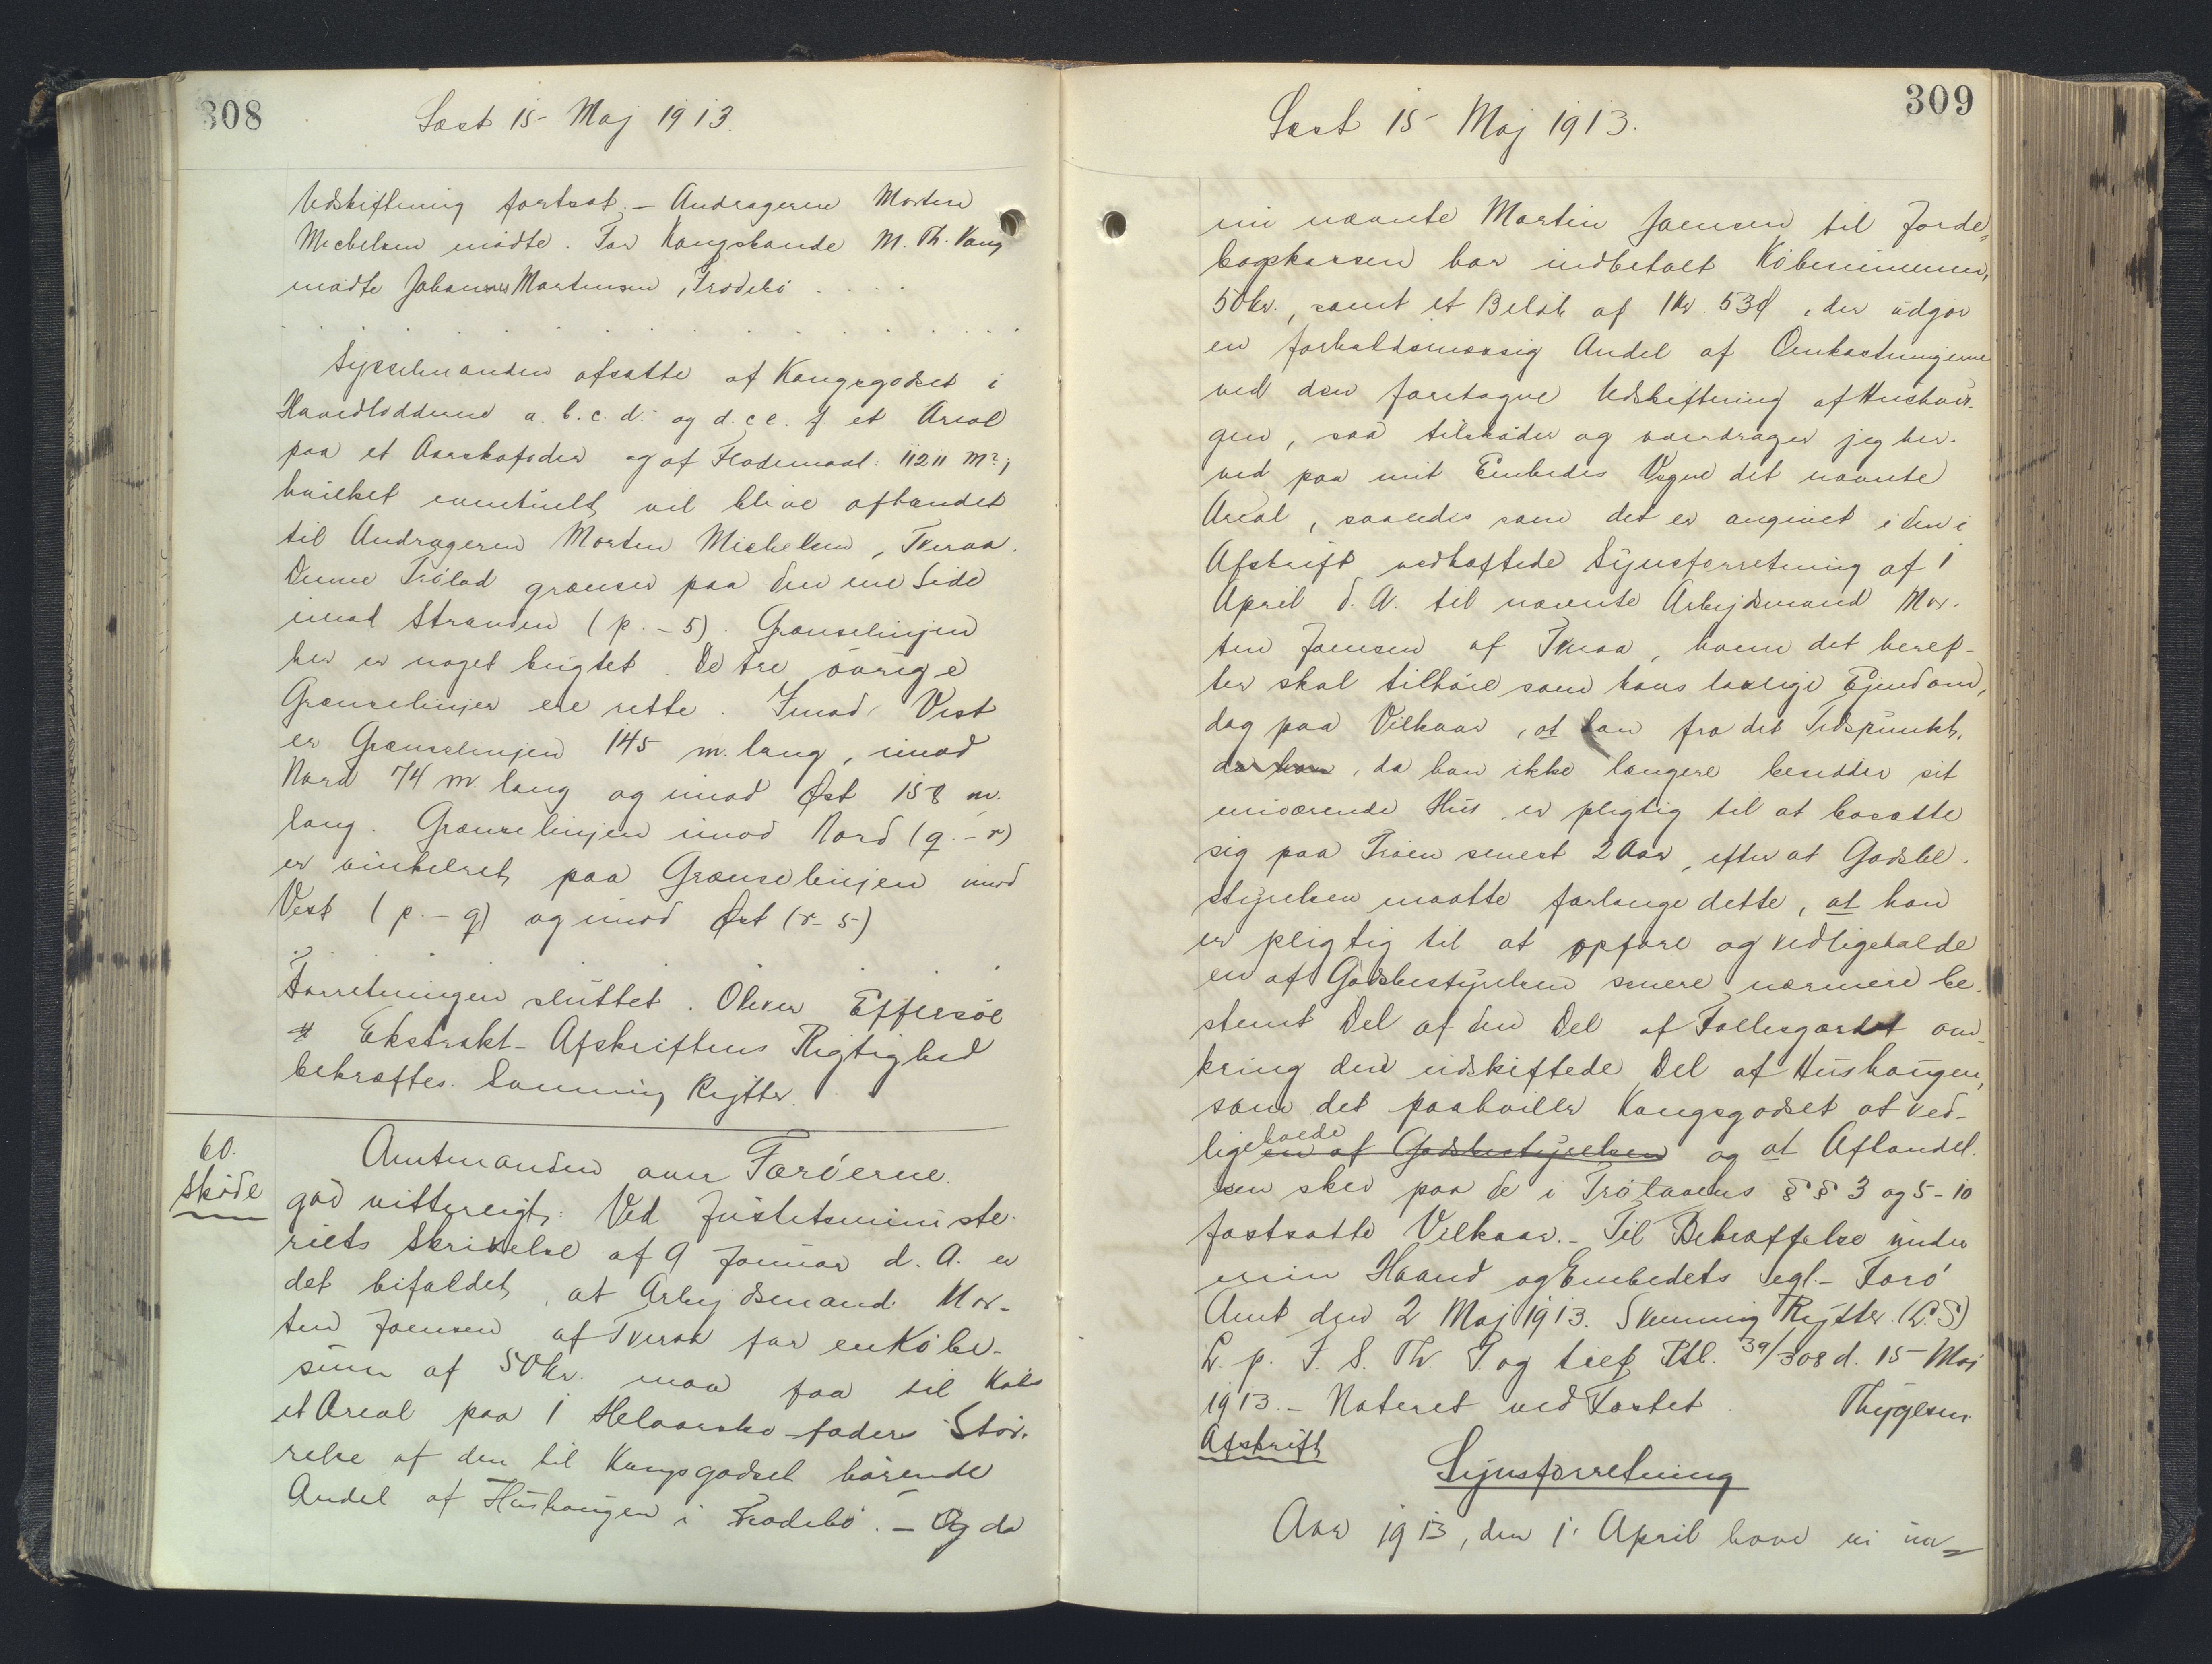 308
Læst 15 Maj 1913.
Udskiftning fortsat. — Andrageren Morten
Michelsen mødte. For Kongsbonde M. Th. Vang
mødte Johannes Mortensen, Frodebø . . . .
. . . . . . . . . . . . . . . .
Sysselmanden afsatte af Kongsgodset i
Hovedlodderne a. b. c. d. og d. c. e. f. et Areal
paa et Aarskofoder og af Flademaal: 11211 m²,
hvilket eventuelt vil blive afhændet
til Andrageren Morten Michelsen, Tveraa.
Denne Trølod grænser paa den ene Side
imod Stranden (p. - s). Grænselinjen
her er noget bugtet. De tre øvrige
Grænselinjer ere rette. Imod Vest
er Grænselinjen 145 m. lang, imod
Nord 74 m. lang og imod Øst 158 m.
lang. Grænselinjen imod Nord (q. - r)
er vinkelret paa Grænselinjen imod
Vest (p. - q) og imod Øst (r - s)
Forretningen sluttet. Oliver Effersøe
Ekstrakt-Afskriftens Rigtighed
bekræftes. Svenning Rytter.
60.
Skøde
Amtmanden over Færøerne.
gør vitterligt: Ved Justitsministe-
riets Skrivelse af 9 Januar d. A. er
det bifaldet, at Arbejdsmand Mor-
ten Joensen af Tveraa for en Købe-
sum af 50 Kr. maa faa til Købs
et Areal paa 1 Helaarsko-foders Stør-
relse af den til Kongsgodset hørende
Andel af Hushaugen i Frodebø. — Og da
309
Læst 15 Maj 1913.
nu nævnte Martin Joensen til Jorde-
bogskassen har indbetalt Købesummen,
50 kr., samt et Beløb af 1 Kr. 53 Ø, der udgør
en forholdsmæssig Andel af Omkostningerne
ved den foretagne Udskiftning af Hushau-
gen, saa tilskøder og overdrager jeg her-
ved paa mit Embedes Vegne det nævnte
Areal, saaledes som det er angivet i den i
Afskrift vedhæftede Synsforretning af 1
April d. A. til nævnte Arbejdsmand Mor-
ten Joensen af Tveraa, hvem det heref-
ter skal tilhøre som hans lovlige Ejendom,
dog paa Vilkaar, at han fra det Tidspunkt,
da han, da han ikke længere besidder sit
nuværende Hus, er pligtig til at bosætte
sig paa Trøen senest 2 Aar, efter at Godsbe-
styrelsen maatte forlange dette, at han
er pligtig til at opføre og vedligeholde
en af Godsbestyrelsen senere nærmere be-
stemt Del af den Del af Fællesgærdet om-
kring den udskiftede Del af Hushaugen,
som det paahviler Kongsgodset at ved-
ligeholde en af Godsbestyrelsen og at Afhændel-
sen sker paa de i Trølovens §§ 3 og 5-10
fastsatte Vilkaar. - Til Bekræftelse under
min Haand og Embedets Segl. - Færø
Amt den 2 Maj 1913. Svenning Rytter. (L.S)
L. p. F. S. Th. P. og Ptl. 39/308 d. 15 Maj
1913. - Noteret ved Fostet. Thygesen
Afskrift
Synsforretning
Aar 1913, den 1. April have vi un-